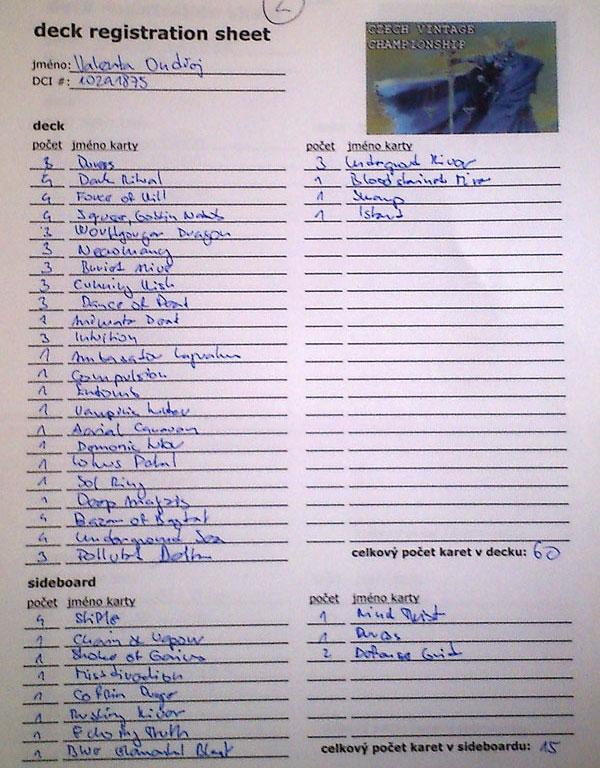 2
deck registration sheet
CZECH VINTAGE
CHAMPIONSHIP
jméno: Valenta Ondřej
DCI #: 10291875
deck
počet jméno karty
3 Duress
4 Dark Ritual
4 Force of Will
4 Squee, Goblin Nabob
3 Worldgorger Dragon
3 Necromancy
3 Buried Alive
3 Cunning Wish
3 Dance of Dead
Animate Dead
3 Intuition
1 Ambassador Laquatus
1 Compulsion
1 Entomb
1 Vampiric Tutor
1 Aerial Caravan
1 Demonic Tutor
1 Lotus Petal
1 Sol Ring
1 Deep Analysis
4 Bazaar of Bagdad
4 Underground Sea
3 Polluted Delta
počet jméno karty
3 Underground River
1 Bloodstained Mire
1 Swamp
1 Island
celkový počet karet v decku: 60
sideboard
počet jméno karty
4 Stifle
1 Chain of Vapour
1 Stroke of Genius
1 Missdirection
1 Coffin Purge
1 Rushing River
1 Echoing Truth
1 Blue Elemental Blast
počet jméno karty
1 Mind Twist
1 Duress
2 Defense Grid
celkový počet karet v sideboardu: 15